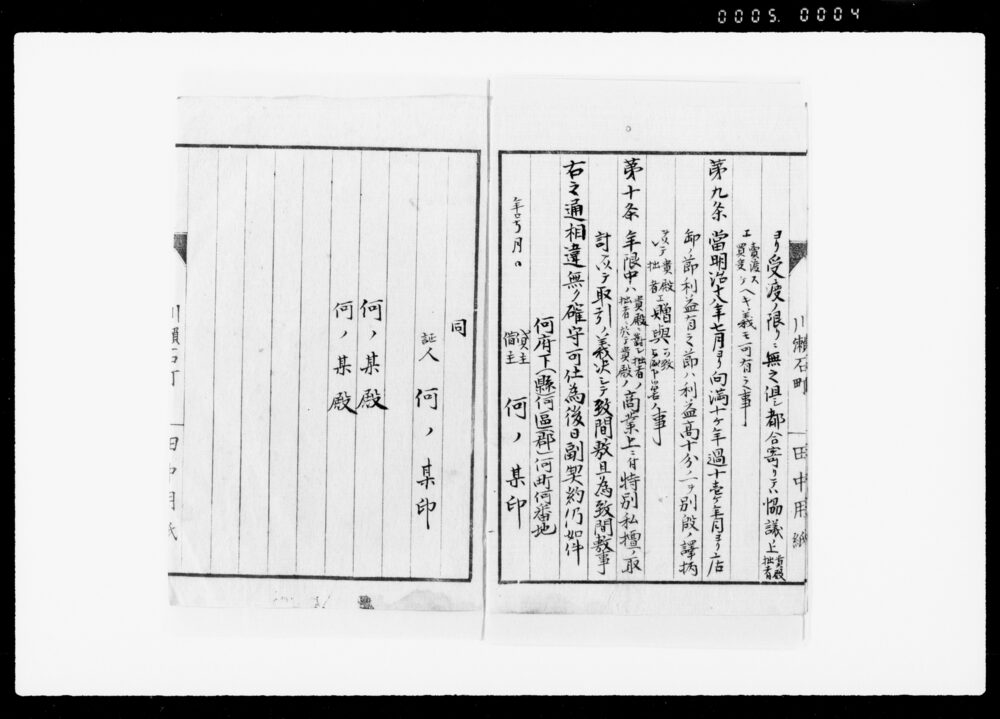 0005. 0004
ヨリ受渡ノ限リニ無之但シ都合寄リテハ協議上貴殿拙者
エ賣渡ス買受ケヘキ義モ可有之事
第九条 當明治十八年七月ヨリ向満十ケ年過十壱ケ年目ヨリ店
卸ノ節利益有之節ハ利益高十分ノ一ヲ別段ノ譯柄
貴殿拙者エ贈與可致
事
第十条 年限中ハ貴殿拙者ノ商業上ニ付特別私檀ノ取
計以テ取引ノ義決シテ致間敷且為致間敷事
右之通相違無ク確守可仕為後日副契約仍如件
年号月日
何府下(縣)何區(郡)何町何番地
貸主借主 何ノ某印
川瀬石町 田中用紙
同
証人 何ノ某印
何ノ某殿
何ノ某殿
川瀬石町 田中用紙